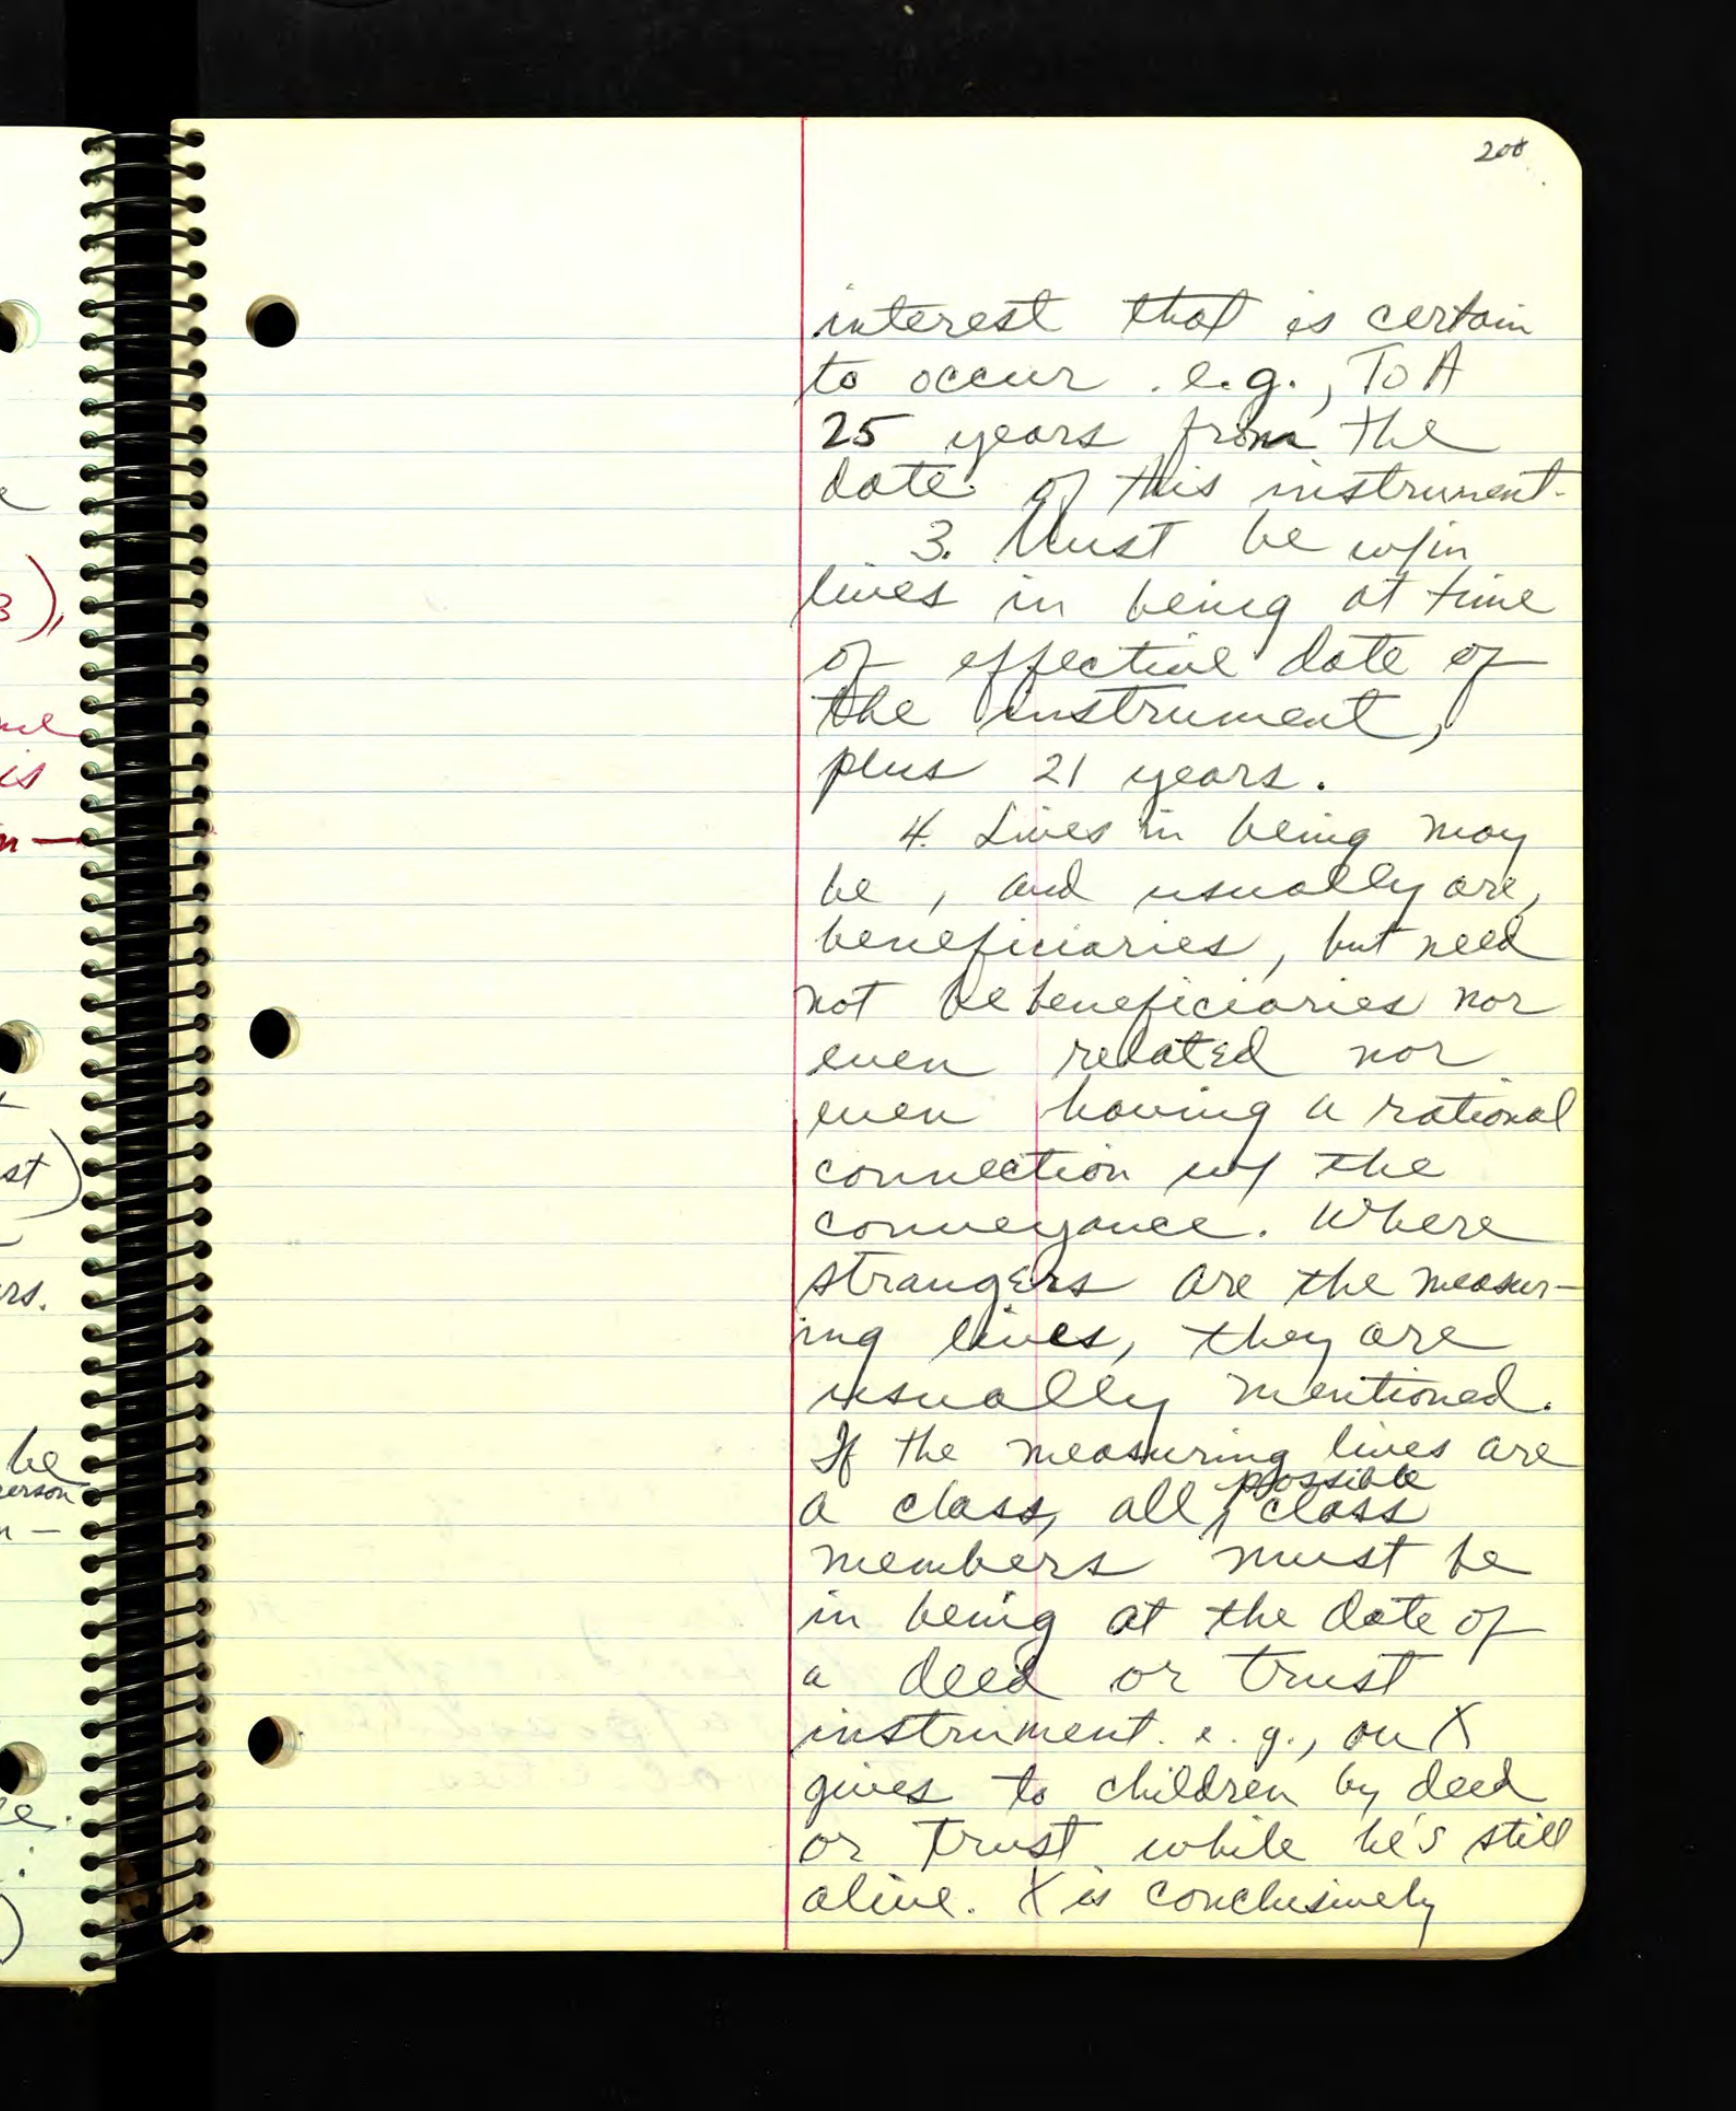 208
interest that is certain
to occur. e.g., To A
25 years from the
date of this instrument.
3. Must be w/in
lives in being at time
of effective date of
the instrument,
plus 21 years.
4. Lives in being may
be, and usually are,
beneficiaries, but need
not be beneficiaries nor
even related nor
even having a rational
connection w/ the
conveyance. Where
strangers are the measur-
ing lives, they are
usually mentioned.
If the measuring lives are
a class, all possible class
members must be
in being at the date of
a deed or trust
instrument. e.g., on X
gives to children by deed
or trust while he's still
alive. X is conclusively
3),
is
st)
rs.
be
erson